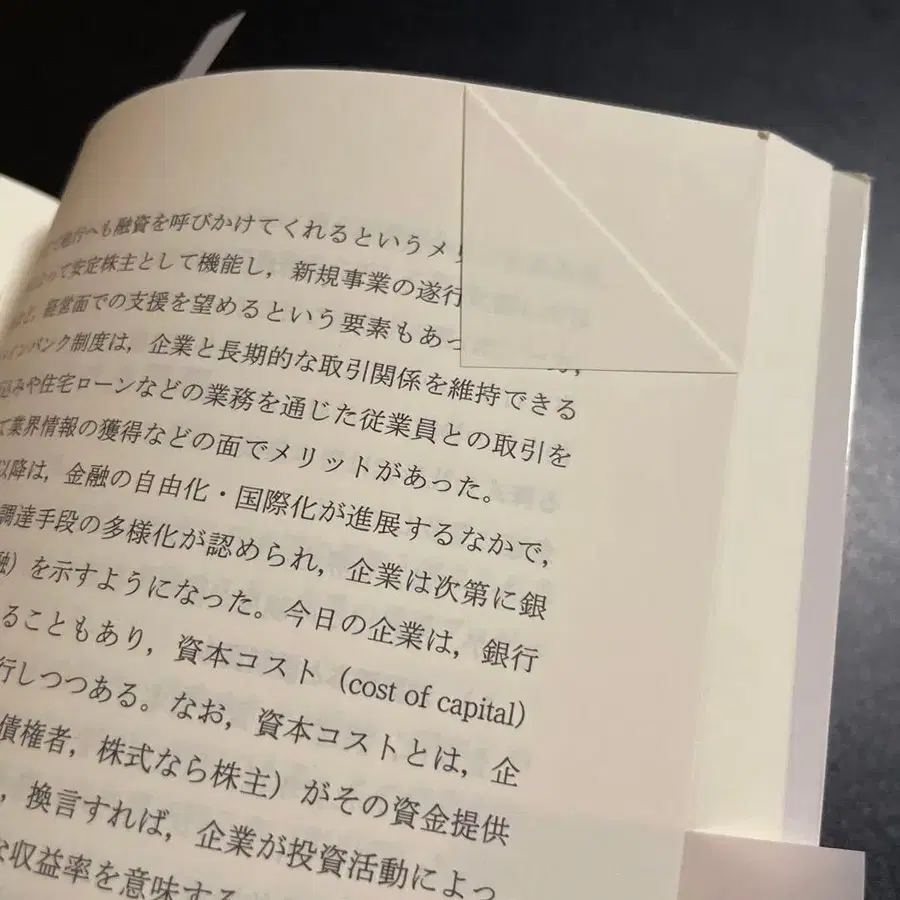 て他行へも融資を呼びかけてくれるというメリ
って安定株主として機能し，新規事業の遂行
，経営面での支援を望めるという要素もあっ
インバンク制度は，企業と長期的な取引関係を維持できる
込みや住宅ローンなどの業務を通じた従業員との取引を
て業界情報の獲得などの面でメリットがあった。
以降は，金融の自由化・国際化が進展するなかで，
調達手段の多様化が認められ，企業は次第に銀
融）を示すようになった。今日の企業は，銀行
ることもあり，資本コスト（cost of capital）
行しつつある。なお，資本コストとは，企
債権者，株式なら株主）がその資金提供
，換言すれば，企業が投資活動によっ
な収益率を意味する